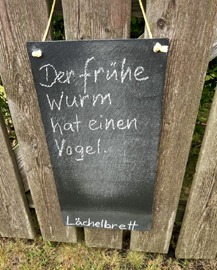 Der frühe
Wurm
hat einen
Vogel.
Lächelbrett